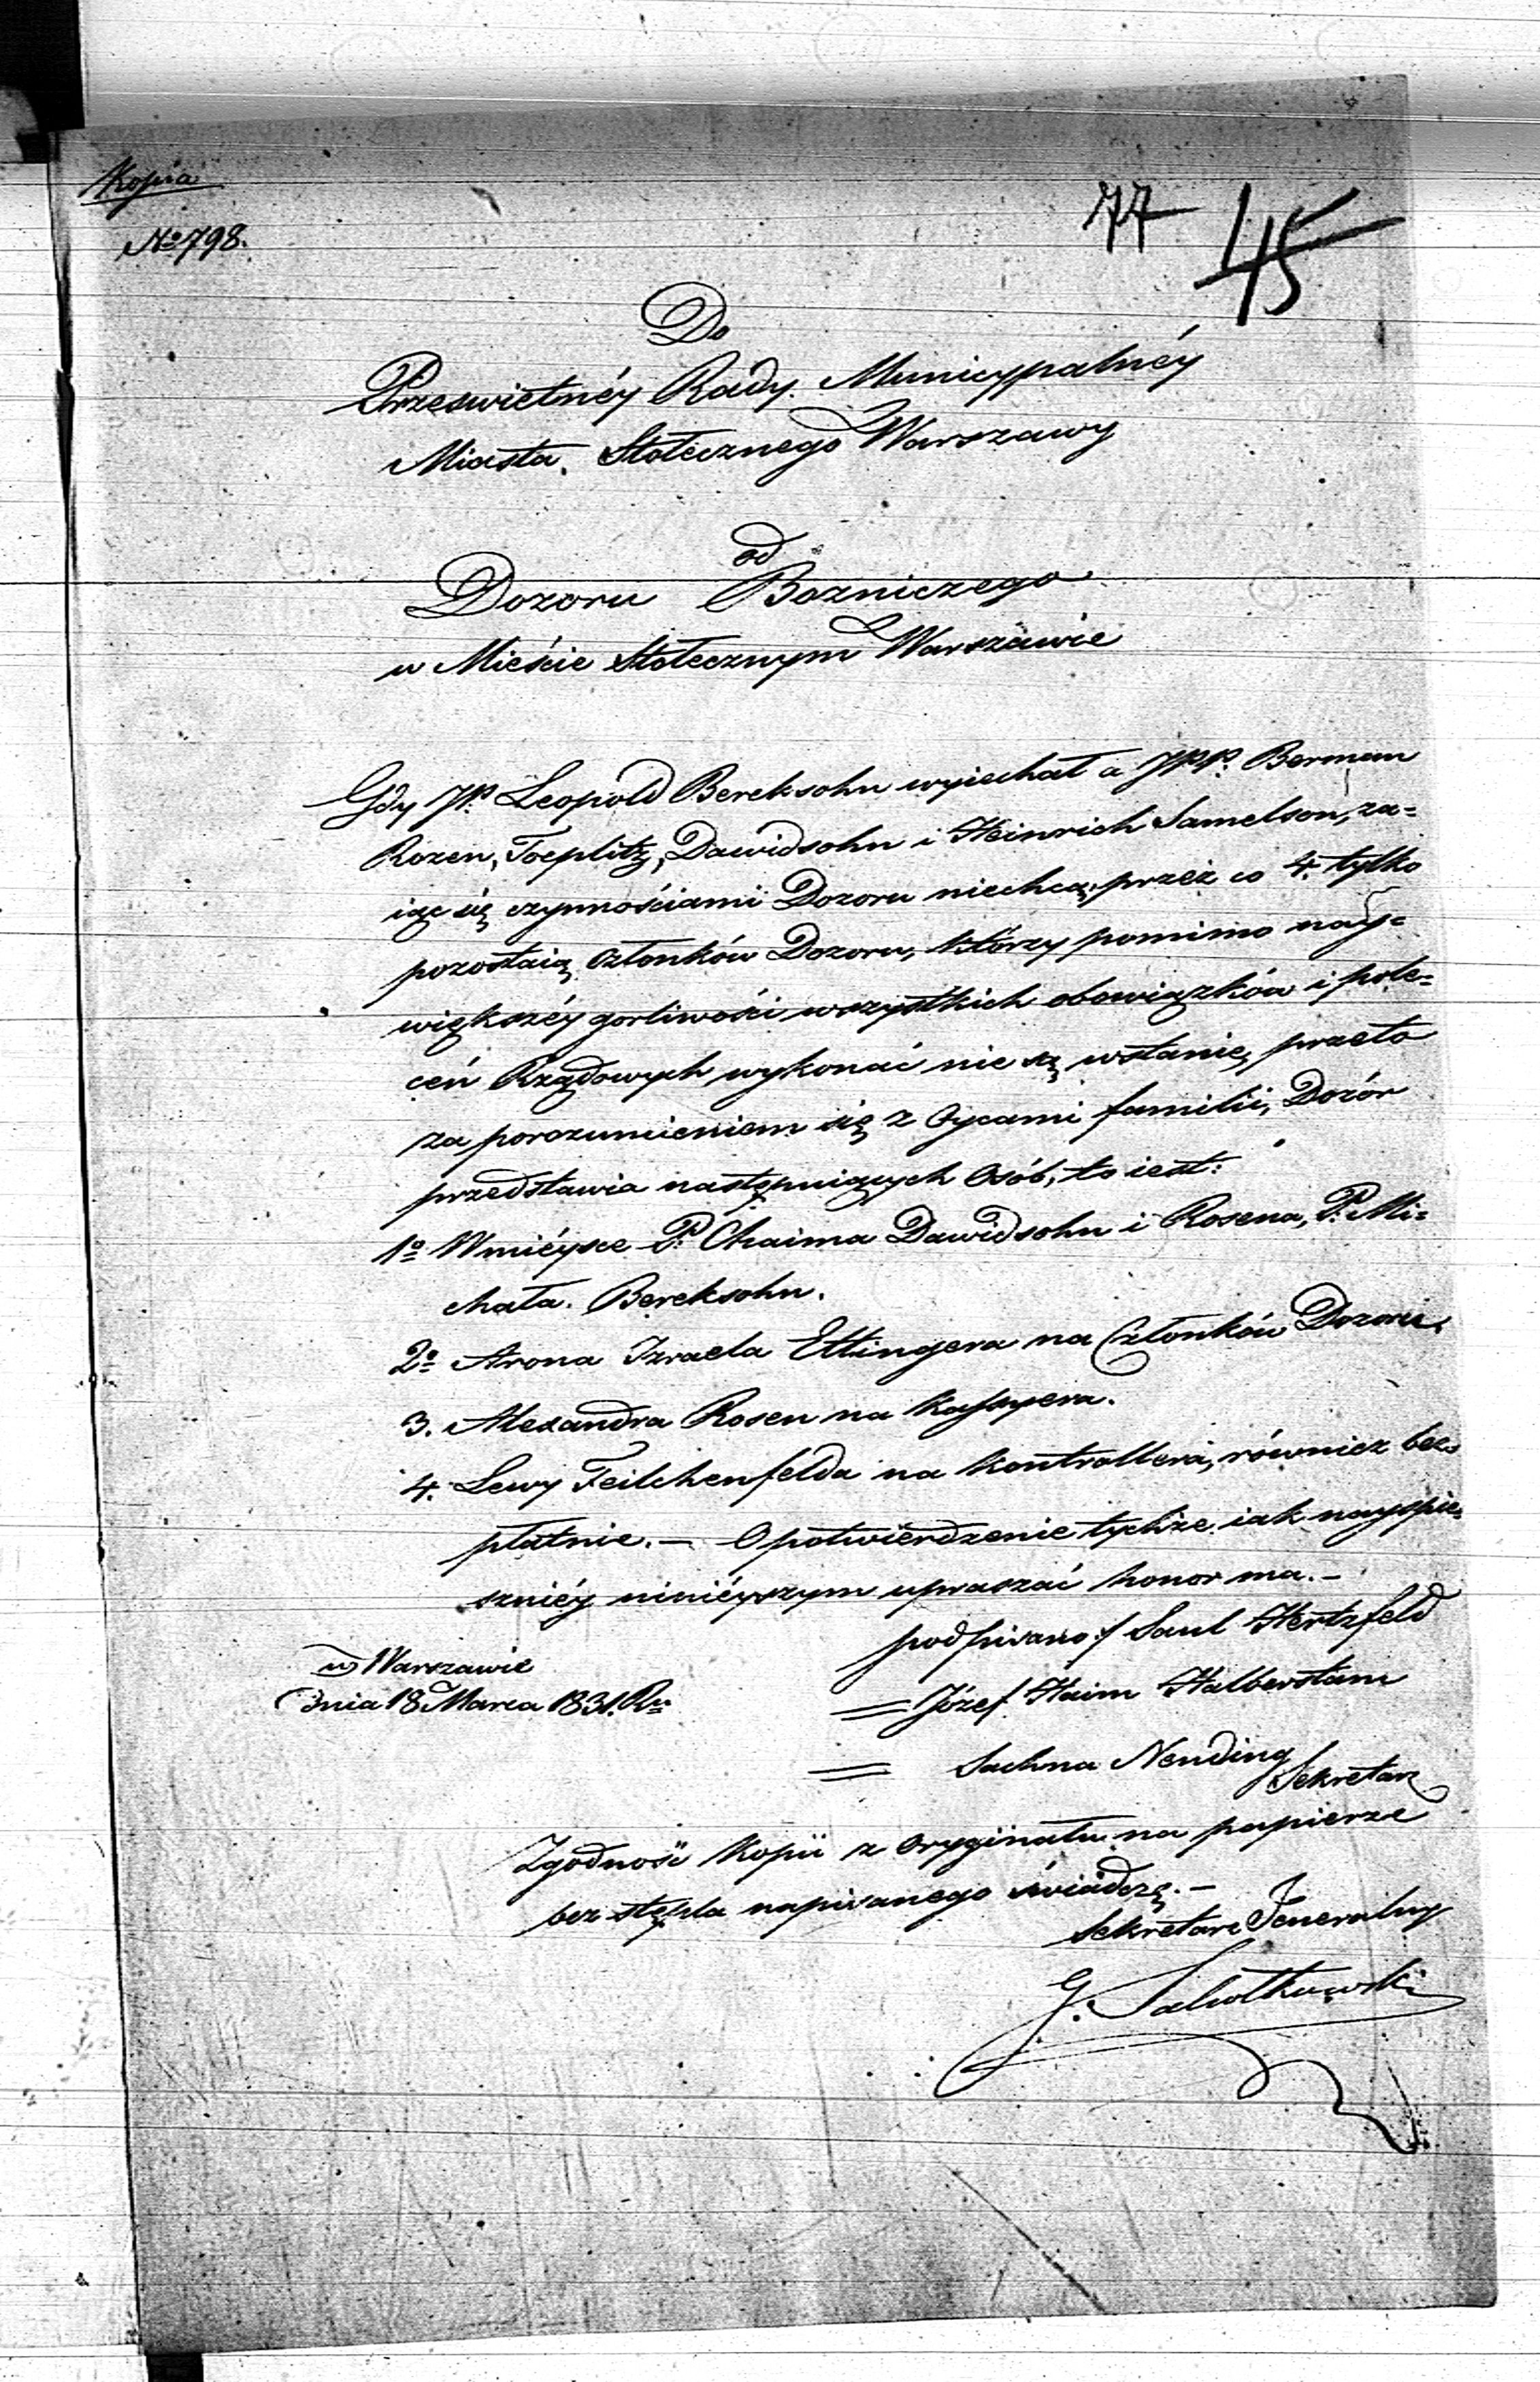 Kopia
No 798.
77 45
Do
Prześwietnéy Rady Municypalnéy
Miasta Stołecznego Warszawy
od
Dozoru Bozniczego
w Mieście Stołecznym Warszawie
Gdy JP. Leopold Bereksohn wyiechał a JPP. Berman
Rozen, Toeplitz, Dawidsohn i Heinrich Samelson, za=
iąć się czynnościami Dozoru niechcą, przez co 4. tylko
pozostaią Członków Dozoru, którzy pomimo nay=
większéy gorliwości wszystkich obowiązków i pole=
ceń Rządowych wykonać nie są wstanie, przeto
za porozumieniem się z Oycami familii, Dozór
przedstawia następuiących Osób, to iest:
1o W mieysce P. Chaima Dawidsohn i Rosena, P. Mi=
chała Bereksohn.
2o Arona Izraela Ettingera na Członków Dozoru.
3. Alexandra Rosen na Kassyera.
4. Lewy Feilchenfelda na Kontrollera, również bez=
płatnie. — O potwierdzenie tychże iak nayspie=
szniéy ninieyszym upraszać honor ma. —
podpisano:/ Saul Hertzfeld
w Warszawie
= Józef Haim Halberstam
dnia 18 Marca 1831. Ru
= Sachna Neuding
Sekretarz
Zgodność Kopii z Oryginału na papierze
bez stępla napisanego świadczę. —
Sekretarz Jeneralny